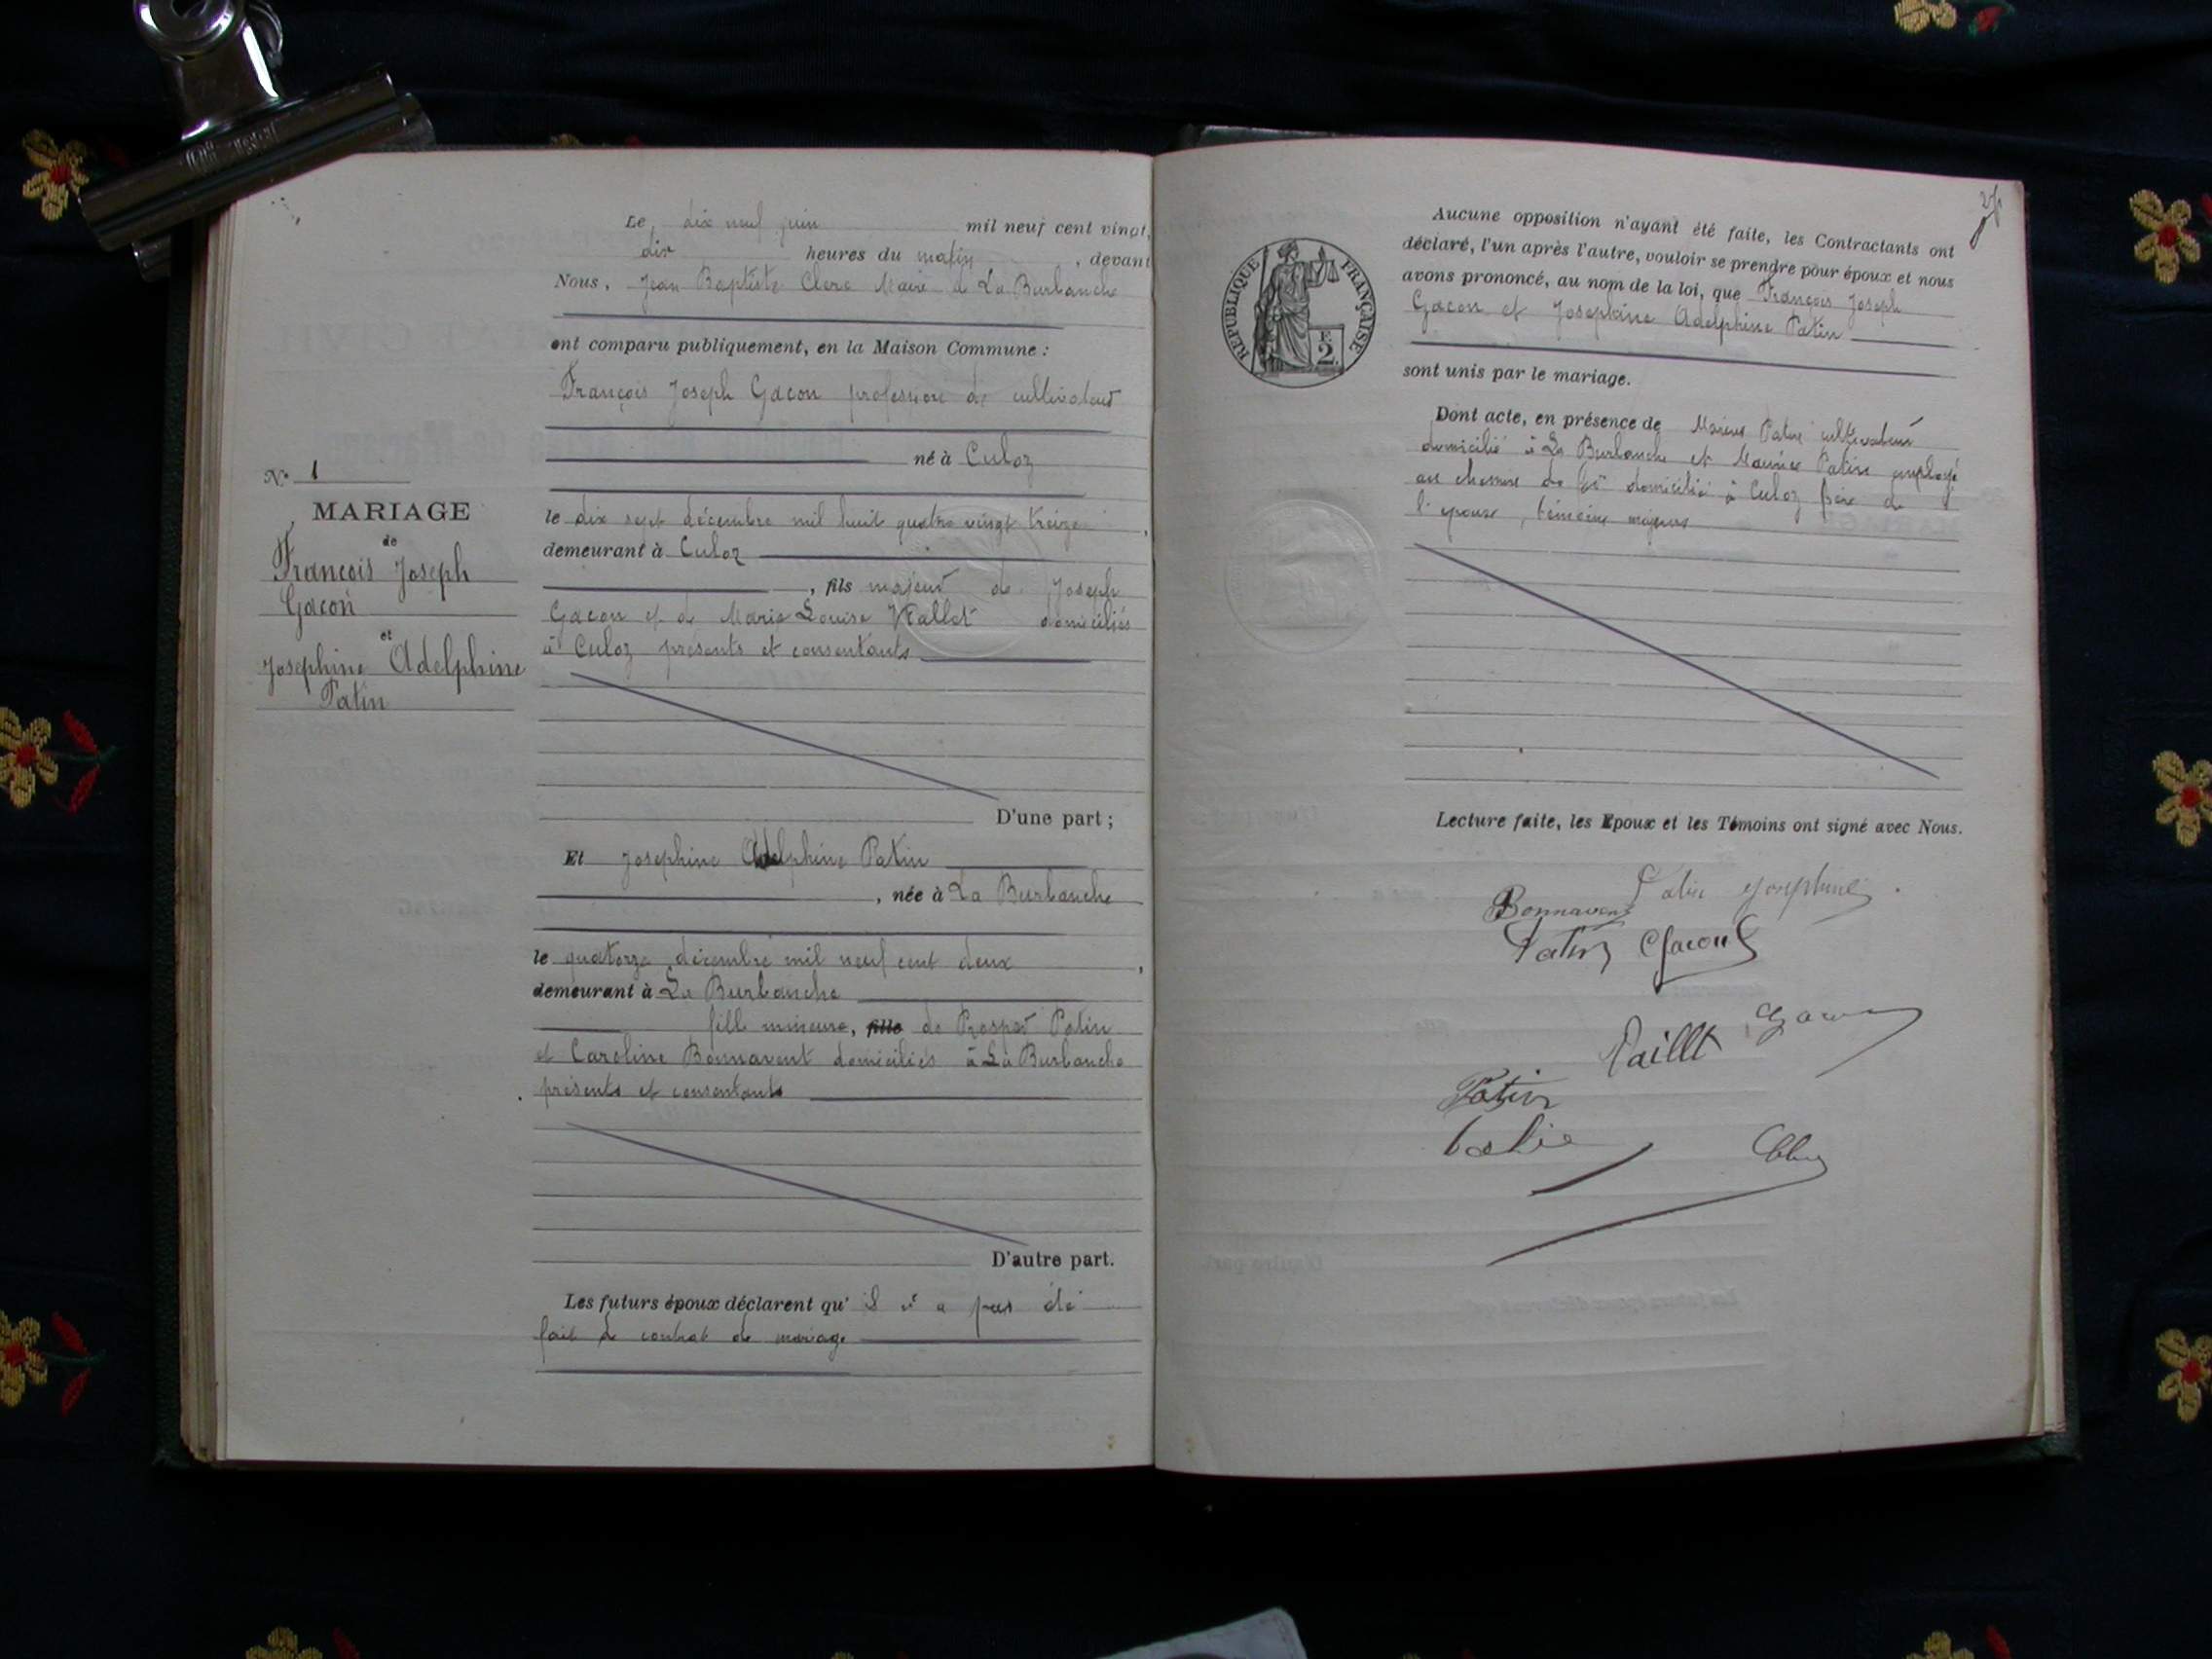 Le dix neuf juin mil neuf cent vingt,
dix heures du matin, devant
Nous, Jean Baptiste Clerc Maire de La Burbanche
ont comparu publiquement, en la Maison Commune :
François Joseph Gacon profession de cultivateur
né à Culoz
le dix sept décembre mil huit quatre vingt treize,
demeurant à Culoz
, fils majeur de Joseph
Gacon et de Marie Louise domiciliés
à Culoz présents et consentants
D'une part ;
N° 1
MARIAGE
de
François Joseph
Gacon
et
Josephine Adelphine
Patin
Et Josephine Adelphine Patin
, née à La Burbanche
le quatorze décembre mil neuf cent deux,
demeurant à La Burbanche
fille mineure, fille de Prosper Patin
et Caroline Bonnavent domiciliés à La Burbanche
présents et consentants
D'autre part.
Les futurs époux déclarent qu'il n'a pas été
fait de contrat de mariage
Aucune opposition n'ayant été faite, les Contractants ont
déclaré, l'un après l'autre, vouloir se prendre pour époux et nous
avons prononcé, au nom de la loi, que François Joseph
Gacon et Josephine Adelphine Patin
sont unis par le mariage.
RÉPUBLIQUE FRANÇAISE
F
2
Dont acte, en présence de Marius Patin cultivateur
domicilié à La Burbanche et Maurice Patin employé
au chemin de fer domicilié à Culoz frère de
l'épouse, témoins majeurs
Lecture faite, les Epoux et les Témoins ont signé avec Nous.
Patin Josephine
Bonnavent
Patin Gacon
Gacon
Patin